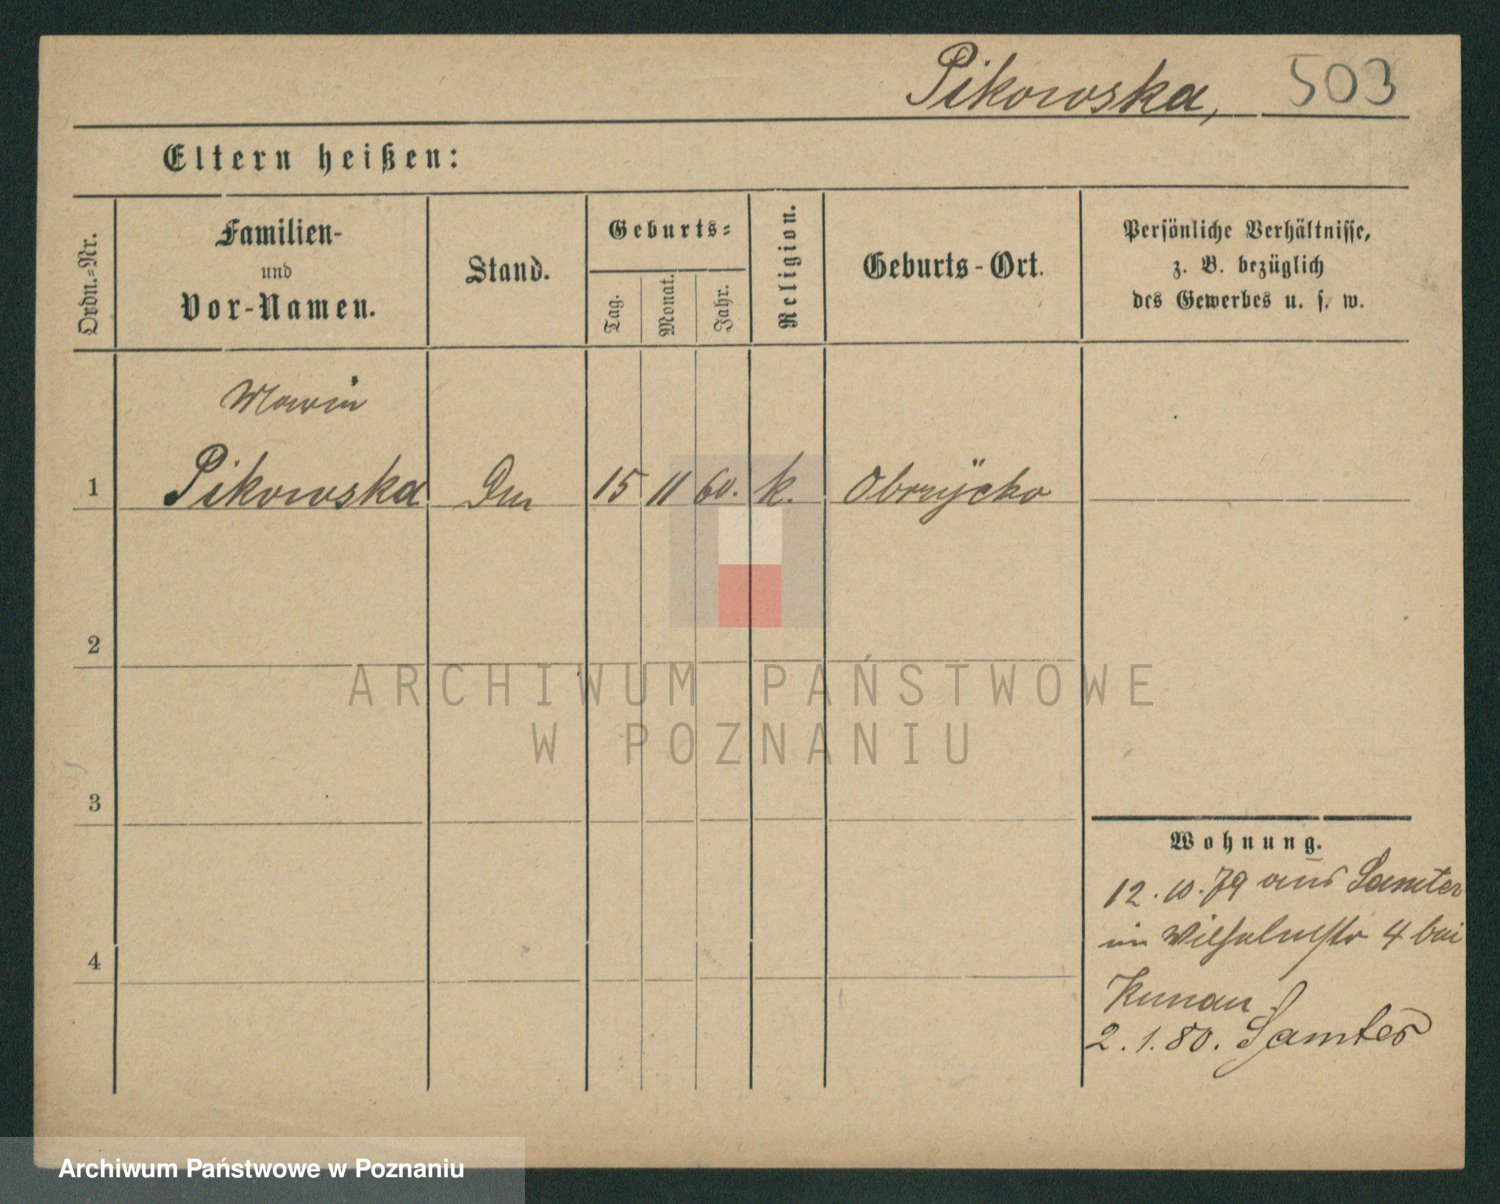 Pikowska, 503
Eltern heißen:
Ordn.=Nr.
Familien-
und
Vor-Namen.
Stand.
Geburts=
Tag.
Monat.
Jahr.
Religion.
Geburts-Ort.
Persönliche Verhältnisse,
z. B. bezüglich
des Gewerbes u. s. w.
1 Pikowska 15 11 60. k. Obrzÿcko
2
3
4
Wohnung.
12.10.79 aus Samter
in Wilhelmstr 4 bei
2.1.80. Samter
ARCHIWUM PAŃSTWOWE
W POZNANIU
Archiwum Państwowe w Poznaniu